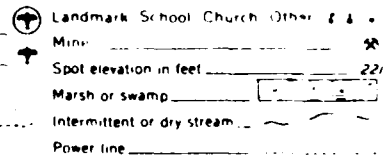 Landmark School Church Other
Mine
Spot elevation in feet 221
Marsh or swamp
Intermittent or dry stream
Power line